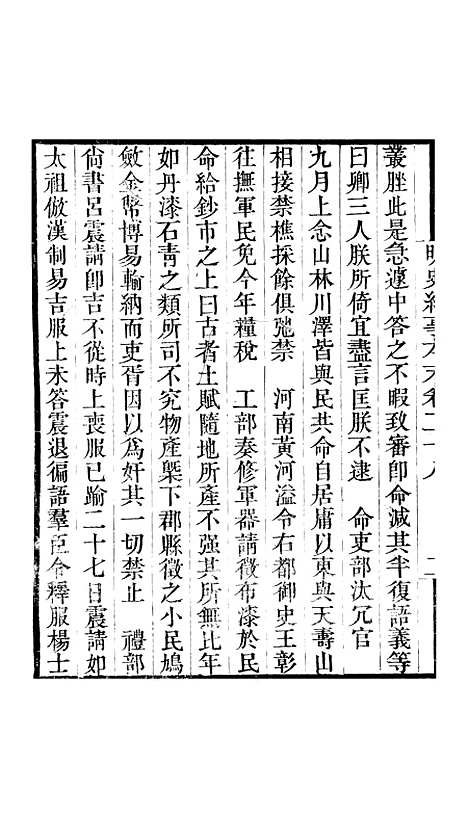 明史紀事本末卷二十八 二
叢脞此是急遽中答之不暇致審卽命減其半復語義等
曰卿三人朕所倚宜盡言匡朕不逮　命吏部汰冗官
九月上念山林川澤皆與民共命自居庸以東與天壽山
相接禁樵採餘俱𢏺禁　河南黃河溢令右都御史王彰
往撫軍民免今年糧稅　工部奏修軍器請徵布漆於民
命給鈔市之上曰古者土賦隨地所產不强其所無比年
如丹漆石靑之類所司不究物產槩下郡縣徵之小民鳩
斂金幣博易輸納而吏胥因以爲奸其一切禁止　禮部
尙書呂震請卽吉不從時上喪服已踰二十七日震請如
太祖倣漢制易吉服上未答震退徧語羣臣令釋服楊士